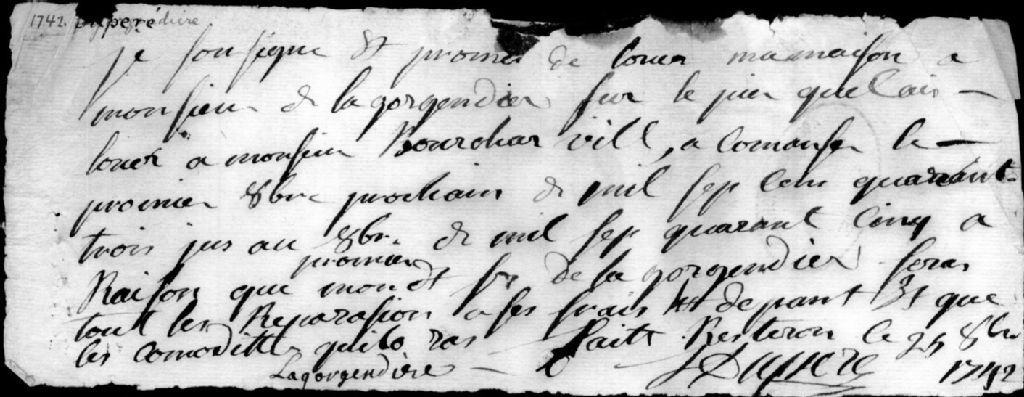 1742. Duperé
je sousigne et promes de louer ma maison a
monsieur de la gorgendier sur le pier que lais
louer a monsieur Bourcharvill, a comanser le
promier 8bre prochain de mil sep cens quarant
trois jus au promier 8bre de mil sep quarant cinq a
Raison que mondt sr de la gorgendier feras
tout les Reparasion a ses frais et depant Et que
les comoditte quilo ras faitt Resteron le 25 8bre
Lagorgendiere Duperé 1742